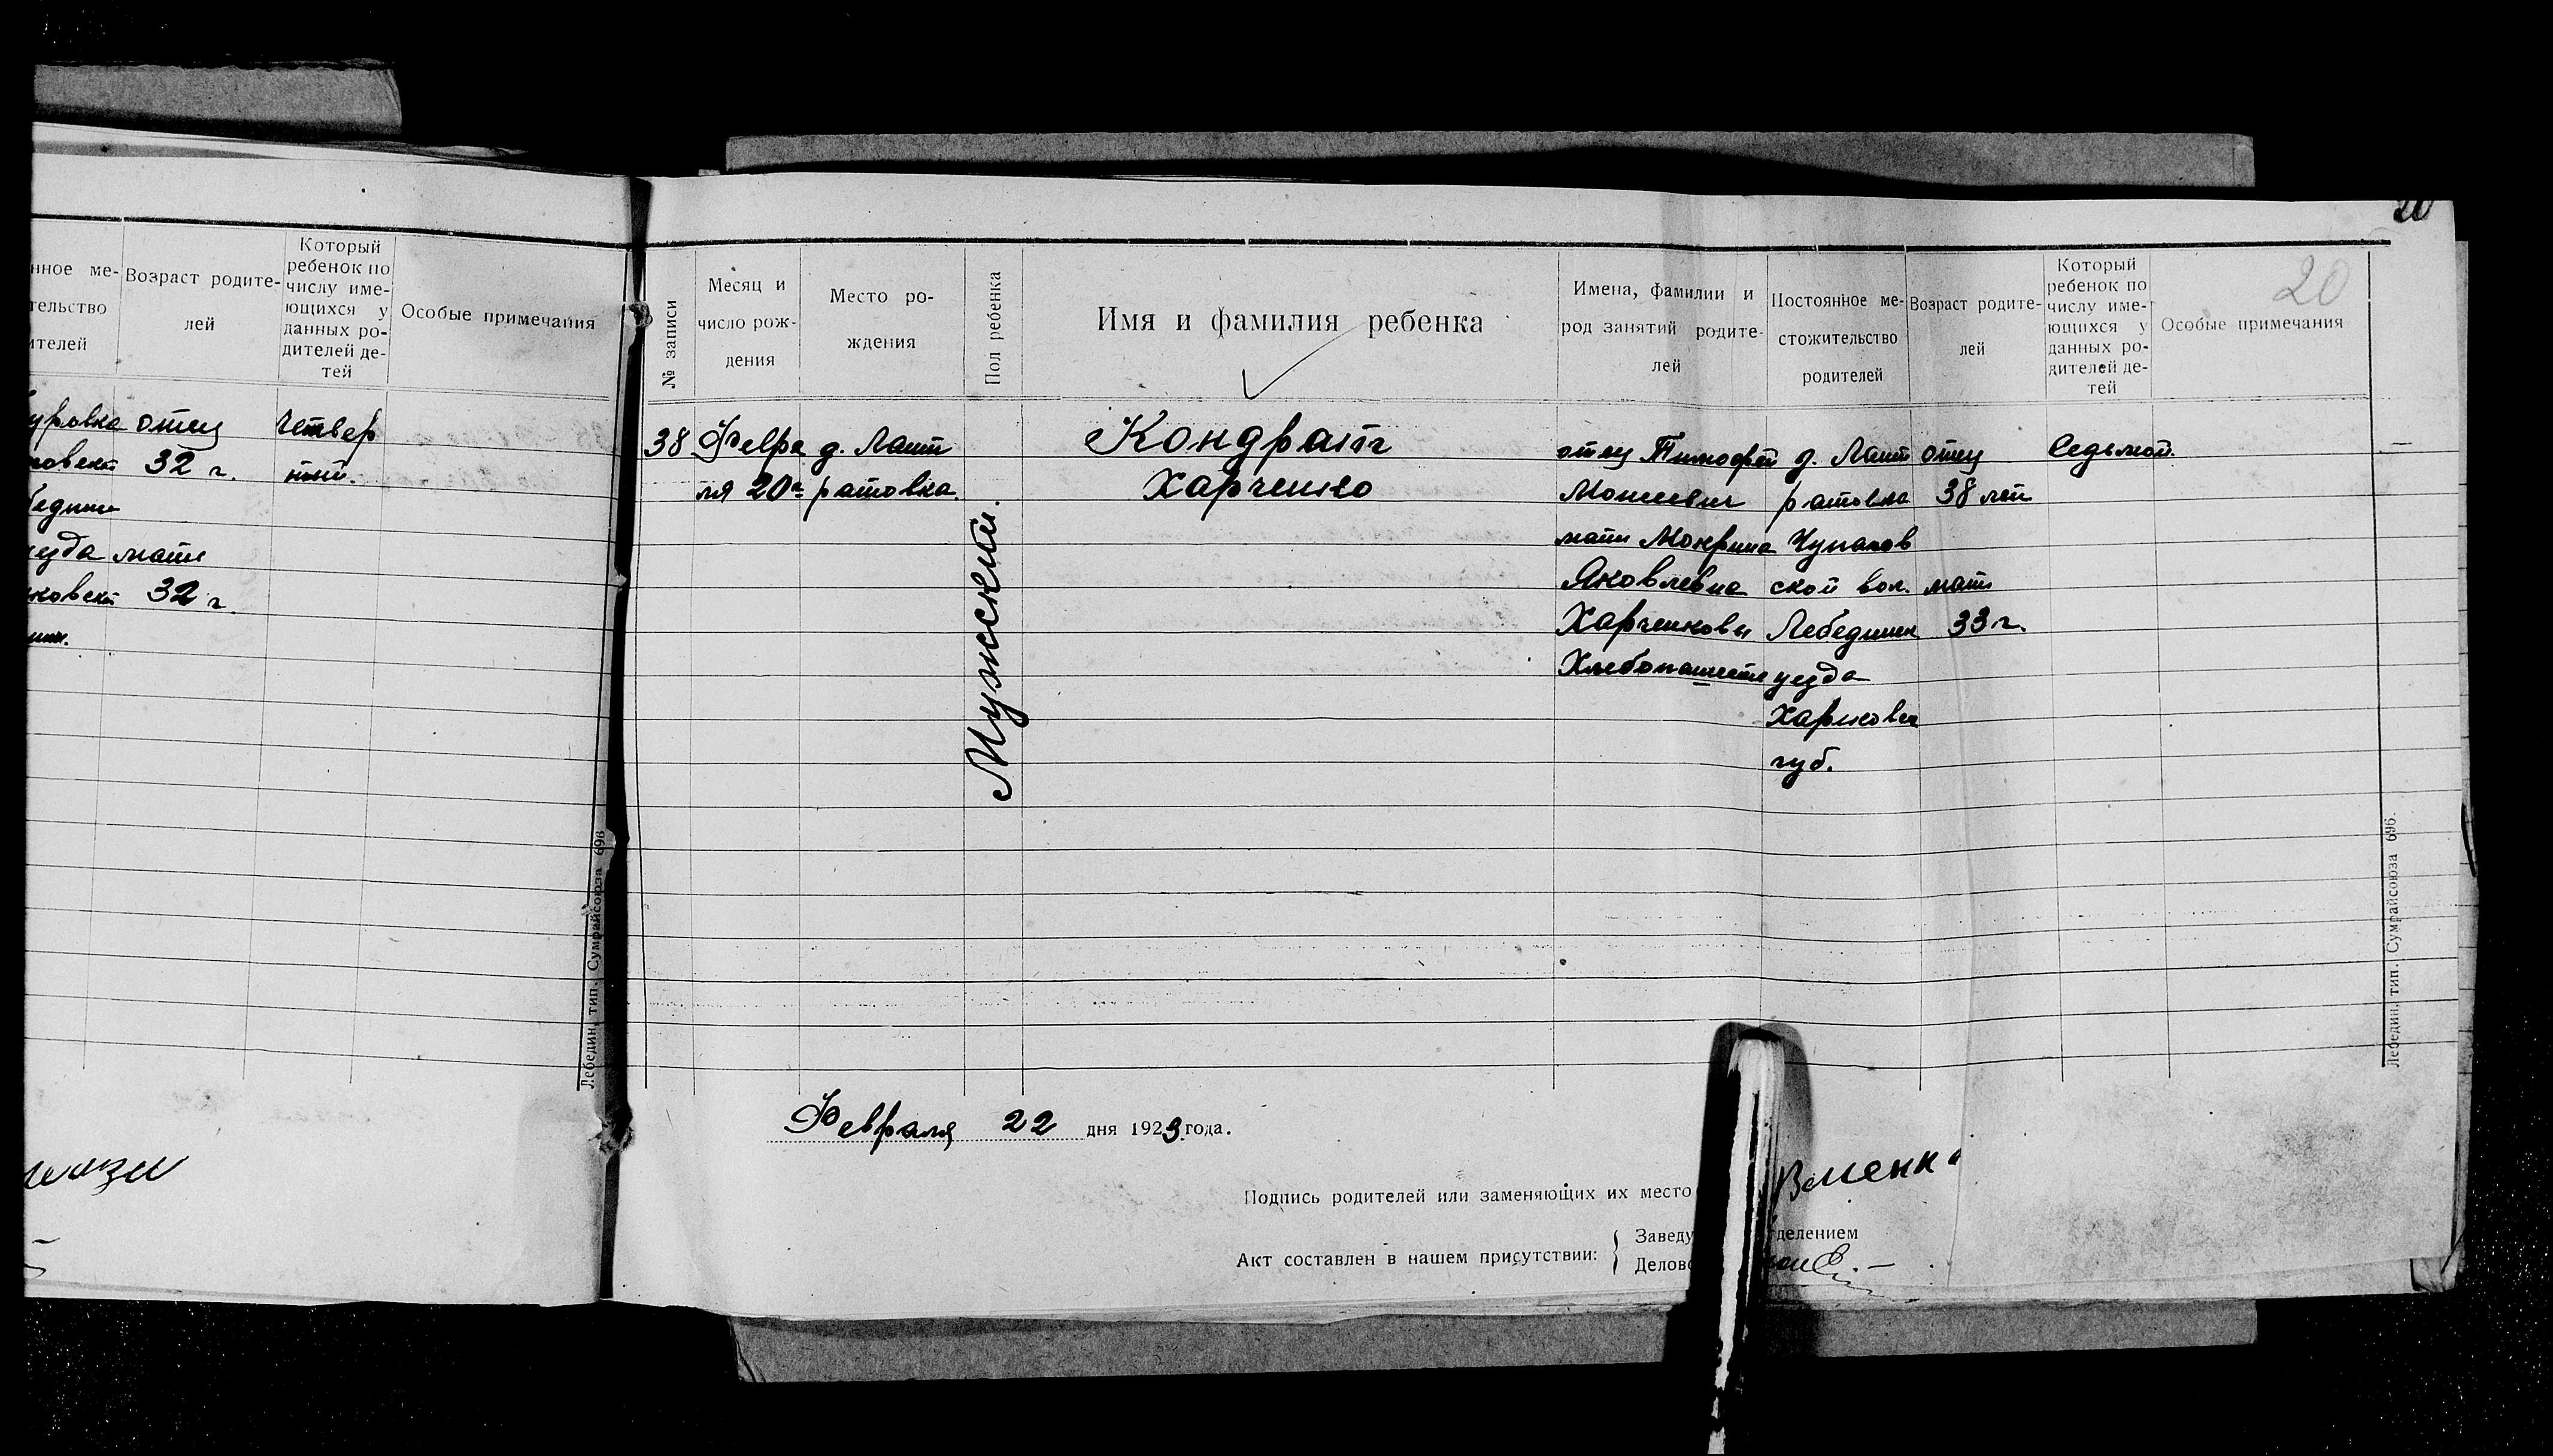 20
20
Возраст родите-
лей
Который
ребенок по
числу име-
ющихся у
данных ро-
дителей де-
тей
Особые примечания
отец
32 г.
мать
32 г.
четвер
тый.
Лебедин, тип. Сумрайсоюза 696
№ записи
Месяц и
число рож-
дения
Место ро-
ждения
Пол ребенка
Имя и фамилия ребенка
Имена, фамилии и
род занятий родите-
лей
Постоянное ме-
стожительство
родителей
Возраст родите-
лей
Который
ребенок по
числу име-
ющихся у
данных ро-
дителей де-
тей
Особые примечания
38
Февра
ля 20го
д. Лашт
ратовка.
Мужский.
Кондрат
Харченко
отец Тимофей
Моисеевич
мать Мокрина
Яковлевна
Харченковы
д. Лашт
ратовка
Чупахов
ской вол.
Лебединск
уезда
Харьков
губ.
отец
38 лет
мать
33 г.
Седьмой.
Лебедин, тип. Сумрайсоюза 696.
Февраля 22 дня 1923 года.
Подпись родителей или заменяющих их место
Акт составлен в нашем присутствии:
Заведу делением
Делово